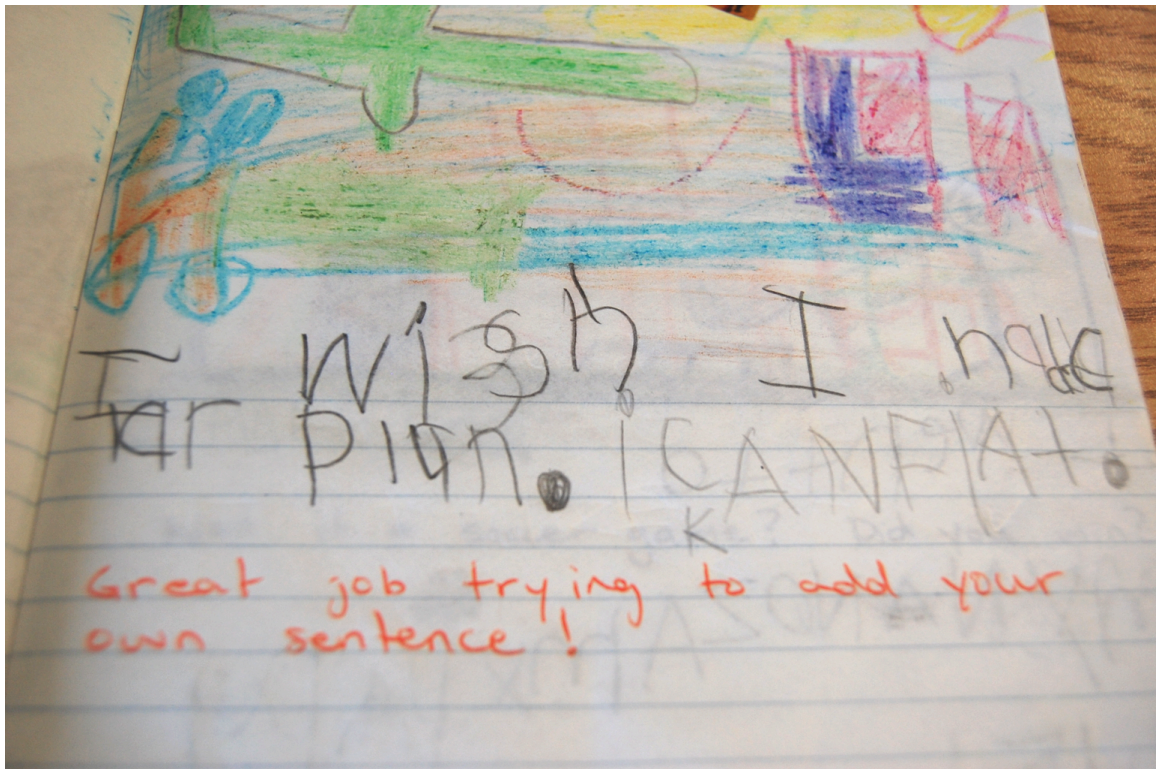 I wish I hade
Far plan. I CAN FlAt.
K
Great job trying to add your
own sentence!